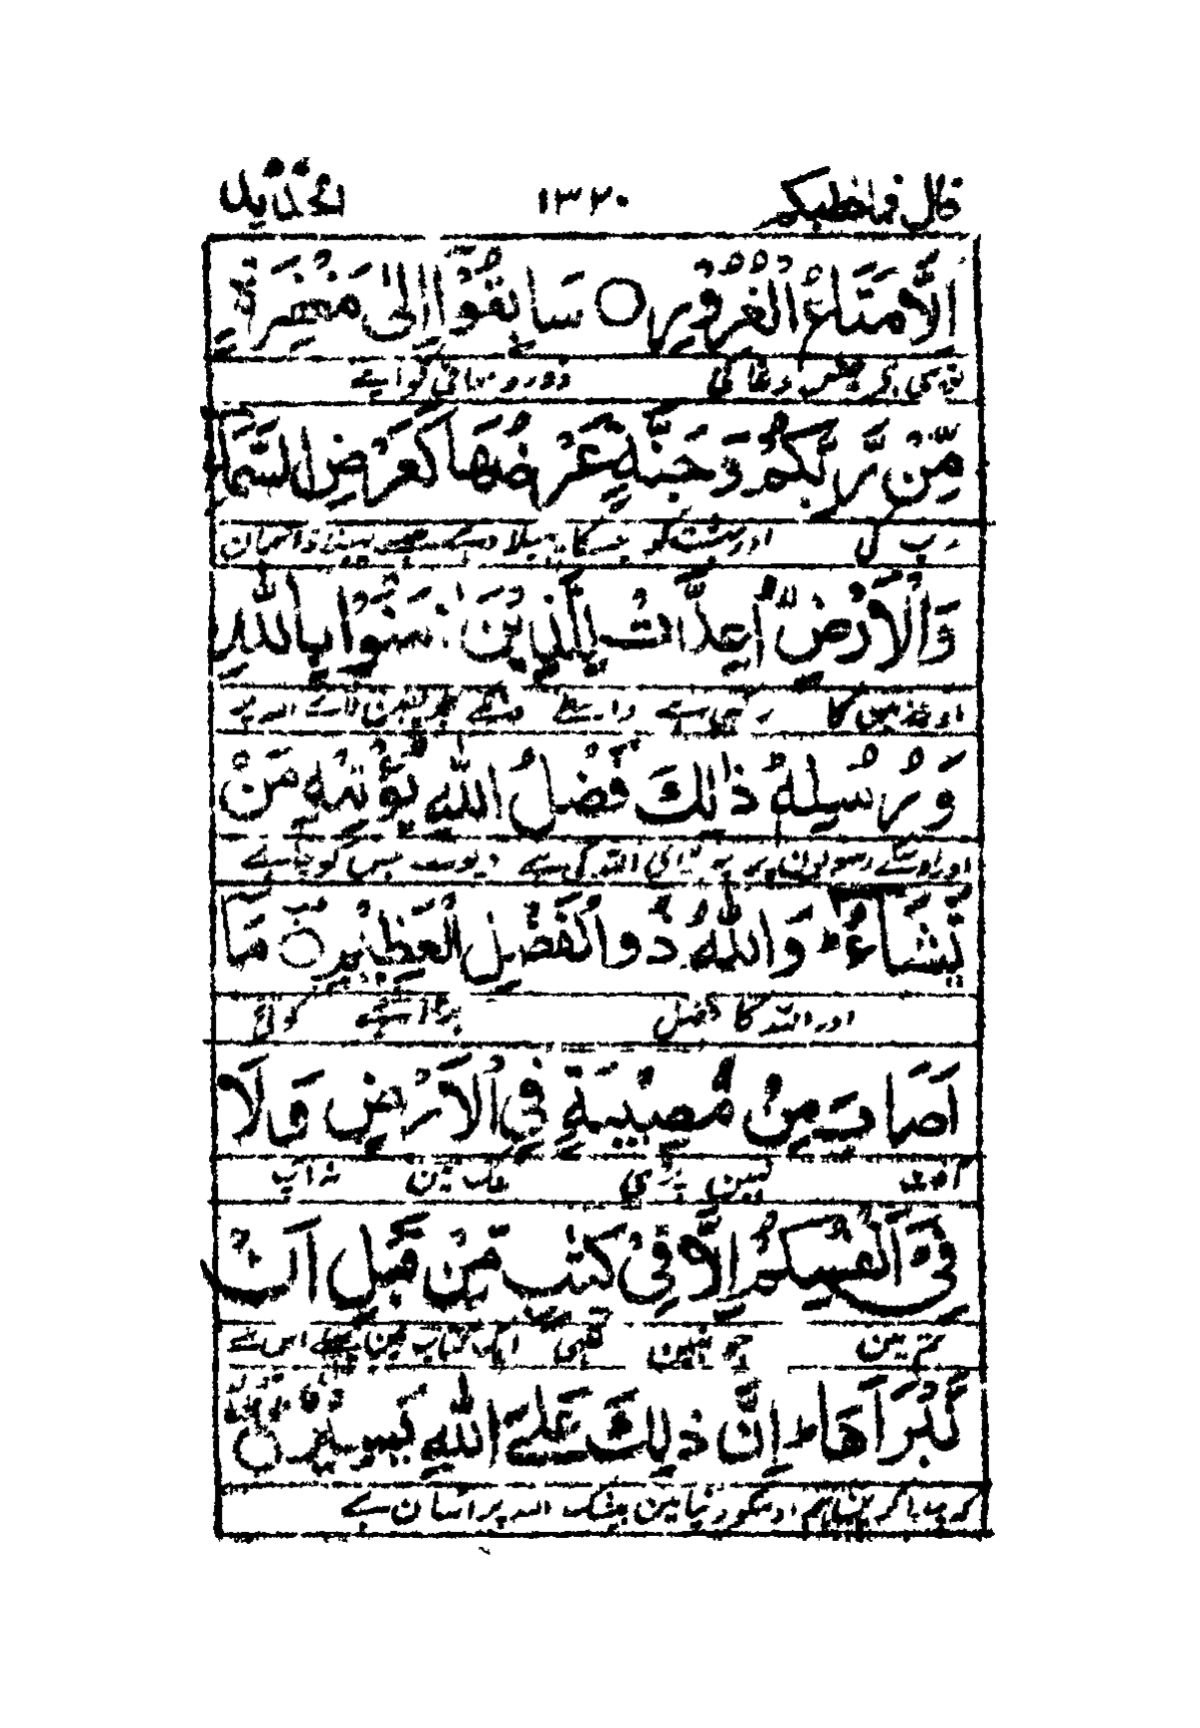 قال فما خطبكم ١٣٢٠ الحديد
اِلَّا مَتَاعُ الْغُرُوْرِ ○ سَابِقُوْٓا اِلٰى مَغْفِرَةٍ
دغا کی دوڑو معافی کو اپنے
مِّنْ رَّبِّكُمْ وَجَنَّةٍ عَرْضُهَا كَعَرْضِ السَّمَآءِ
رب کی اور بہشت کو جسکا پہیلاو ہے جیسے پہیلاو آسمان
وَالْاَرْضِ اُعِدَّتْ لِلَّذِيْنَ اٰمَنُوْا بِاللّٰهِ
اور زمین کا رکہی ہے واسطے جو یقین لائے اللہ پر
وَرُسُلِهٖ ذٰلِكَ فَضْلُ اللّٰهِ يُؤْتِيْهِ مَنْ
اور اوسکے رسولون پر یہ بڑائی اللہ کی ہے دیوے جس کو چاہے
يَّشَآءُ ط وَاللّٰهُ ذُو الْفَضْلِ الْعَظِيْمِ ○ مَآ
اور اللہ کا فضل بڑا ہے کوئی
اَصَابَ مِنْ مُّصِيْبَةٍ فِي الْاَرْضِ وَلَا
آفت نہین پڑی ملک مین نہ آپ
فِيْٓ اَنْفُسِكُمْ اِلَّا فِيْ كِتٰبٍ مِّنْ قَبْلِ اَنْ
تم مین جو نہین لکہی ایک کتاب مین پہلے اس سے
نَّبْرَاَهَا ط اِنَّ ذٰلِكَ عَلَى اللّٰهِ يَسِيْرٌ
کہ پیدا کرین ہم اوسکو دنیا مین بیشک اللہ پر آسان ہے